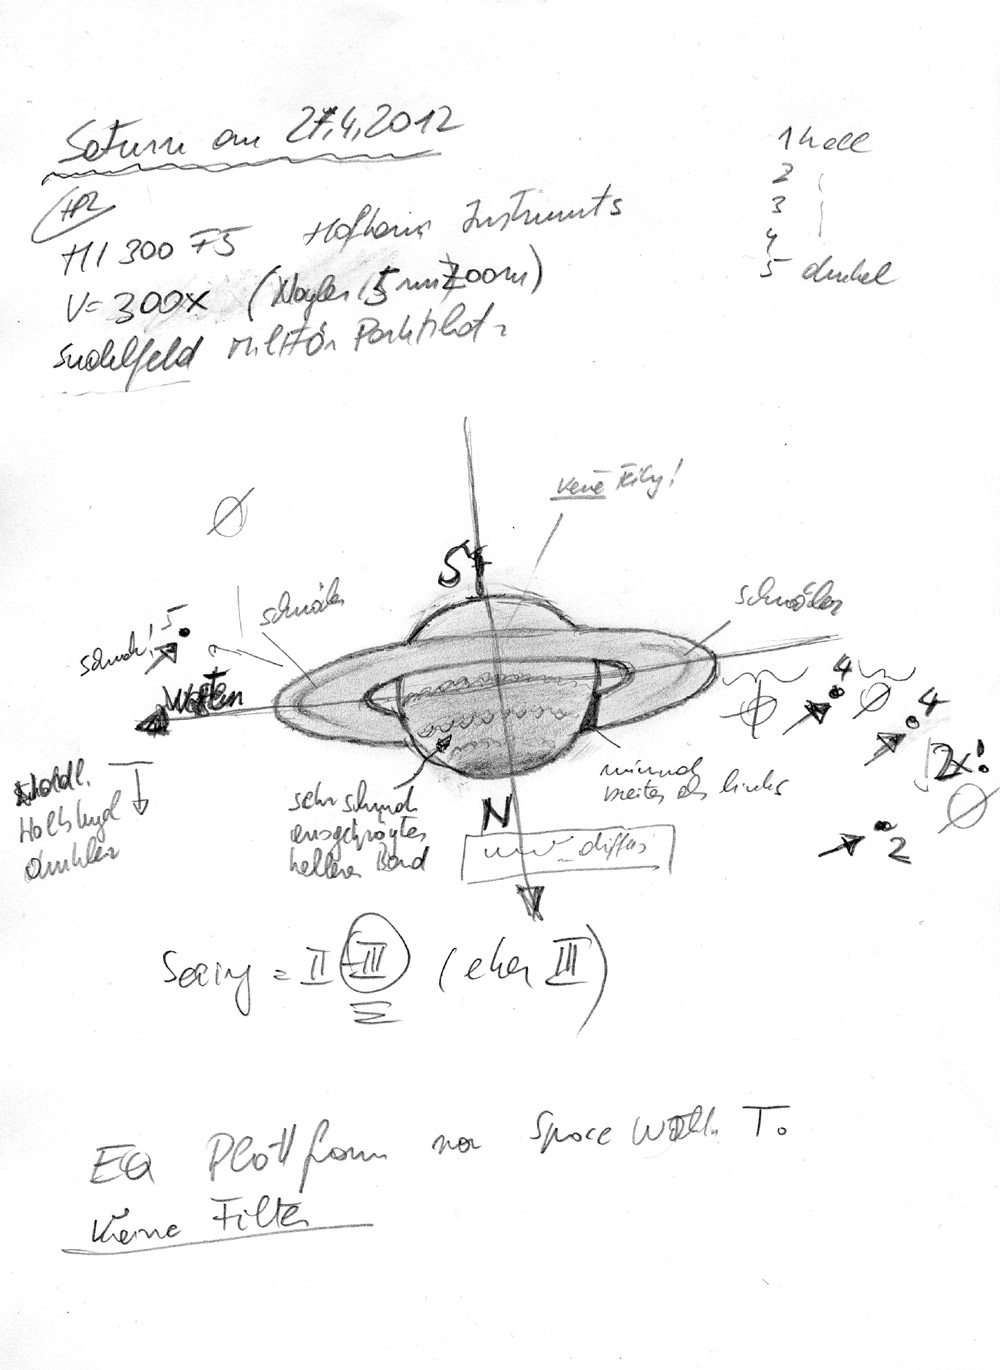 Saturn am 27.4.2012
HI 300 F5 Hofheim Instruments
V=300x (Nagler 5mm Zoom)
Sudelfeld Militär Parkplatz
1 hell
2
3
4
5 dunkel
Ø
keine Teilg!
S
schmäler
schmäler
schwach!
5
Westen
4
Ø
Ø
4
2x!
Ø
2
nördl.
Halbkugel
dunkler
sehr schwach
ausgeprägtes
helleres Band
minimal
breiter als links
N
nur diffus
Seeing = II-III (eher III)
EQ Plattform von Spacewalk T.
Keine Filter